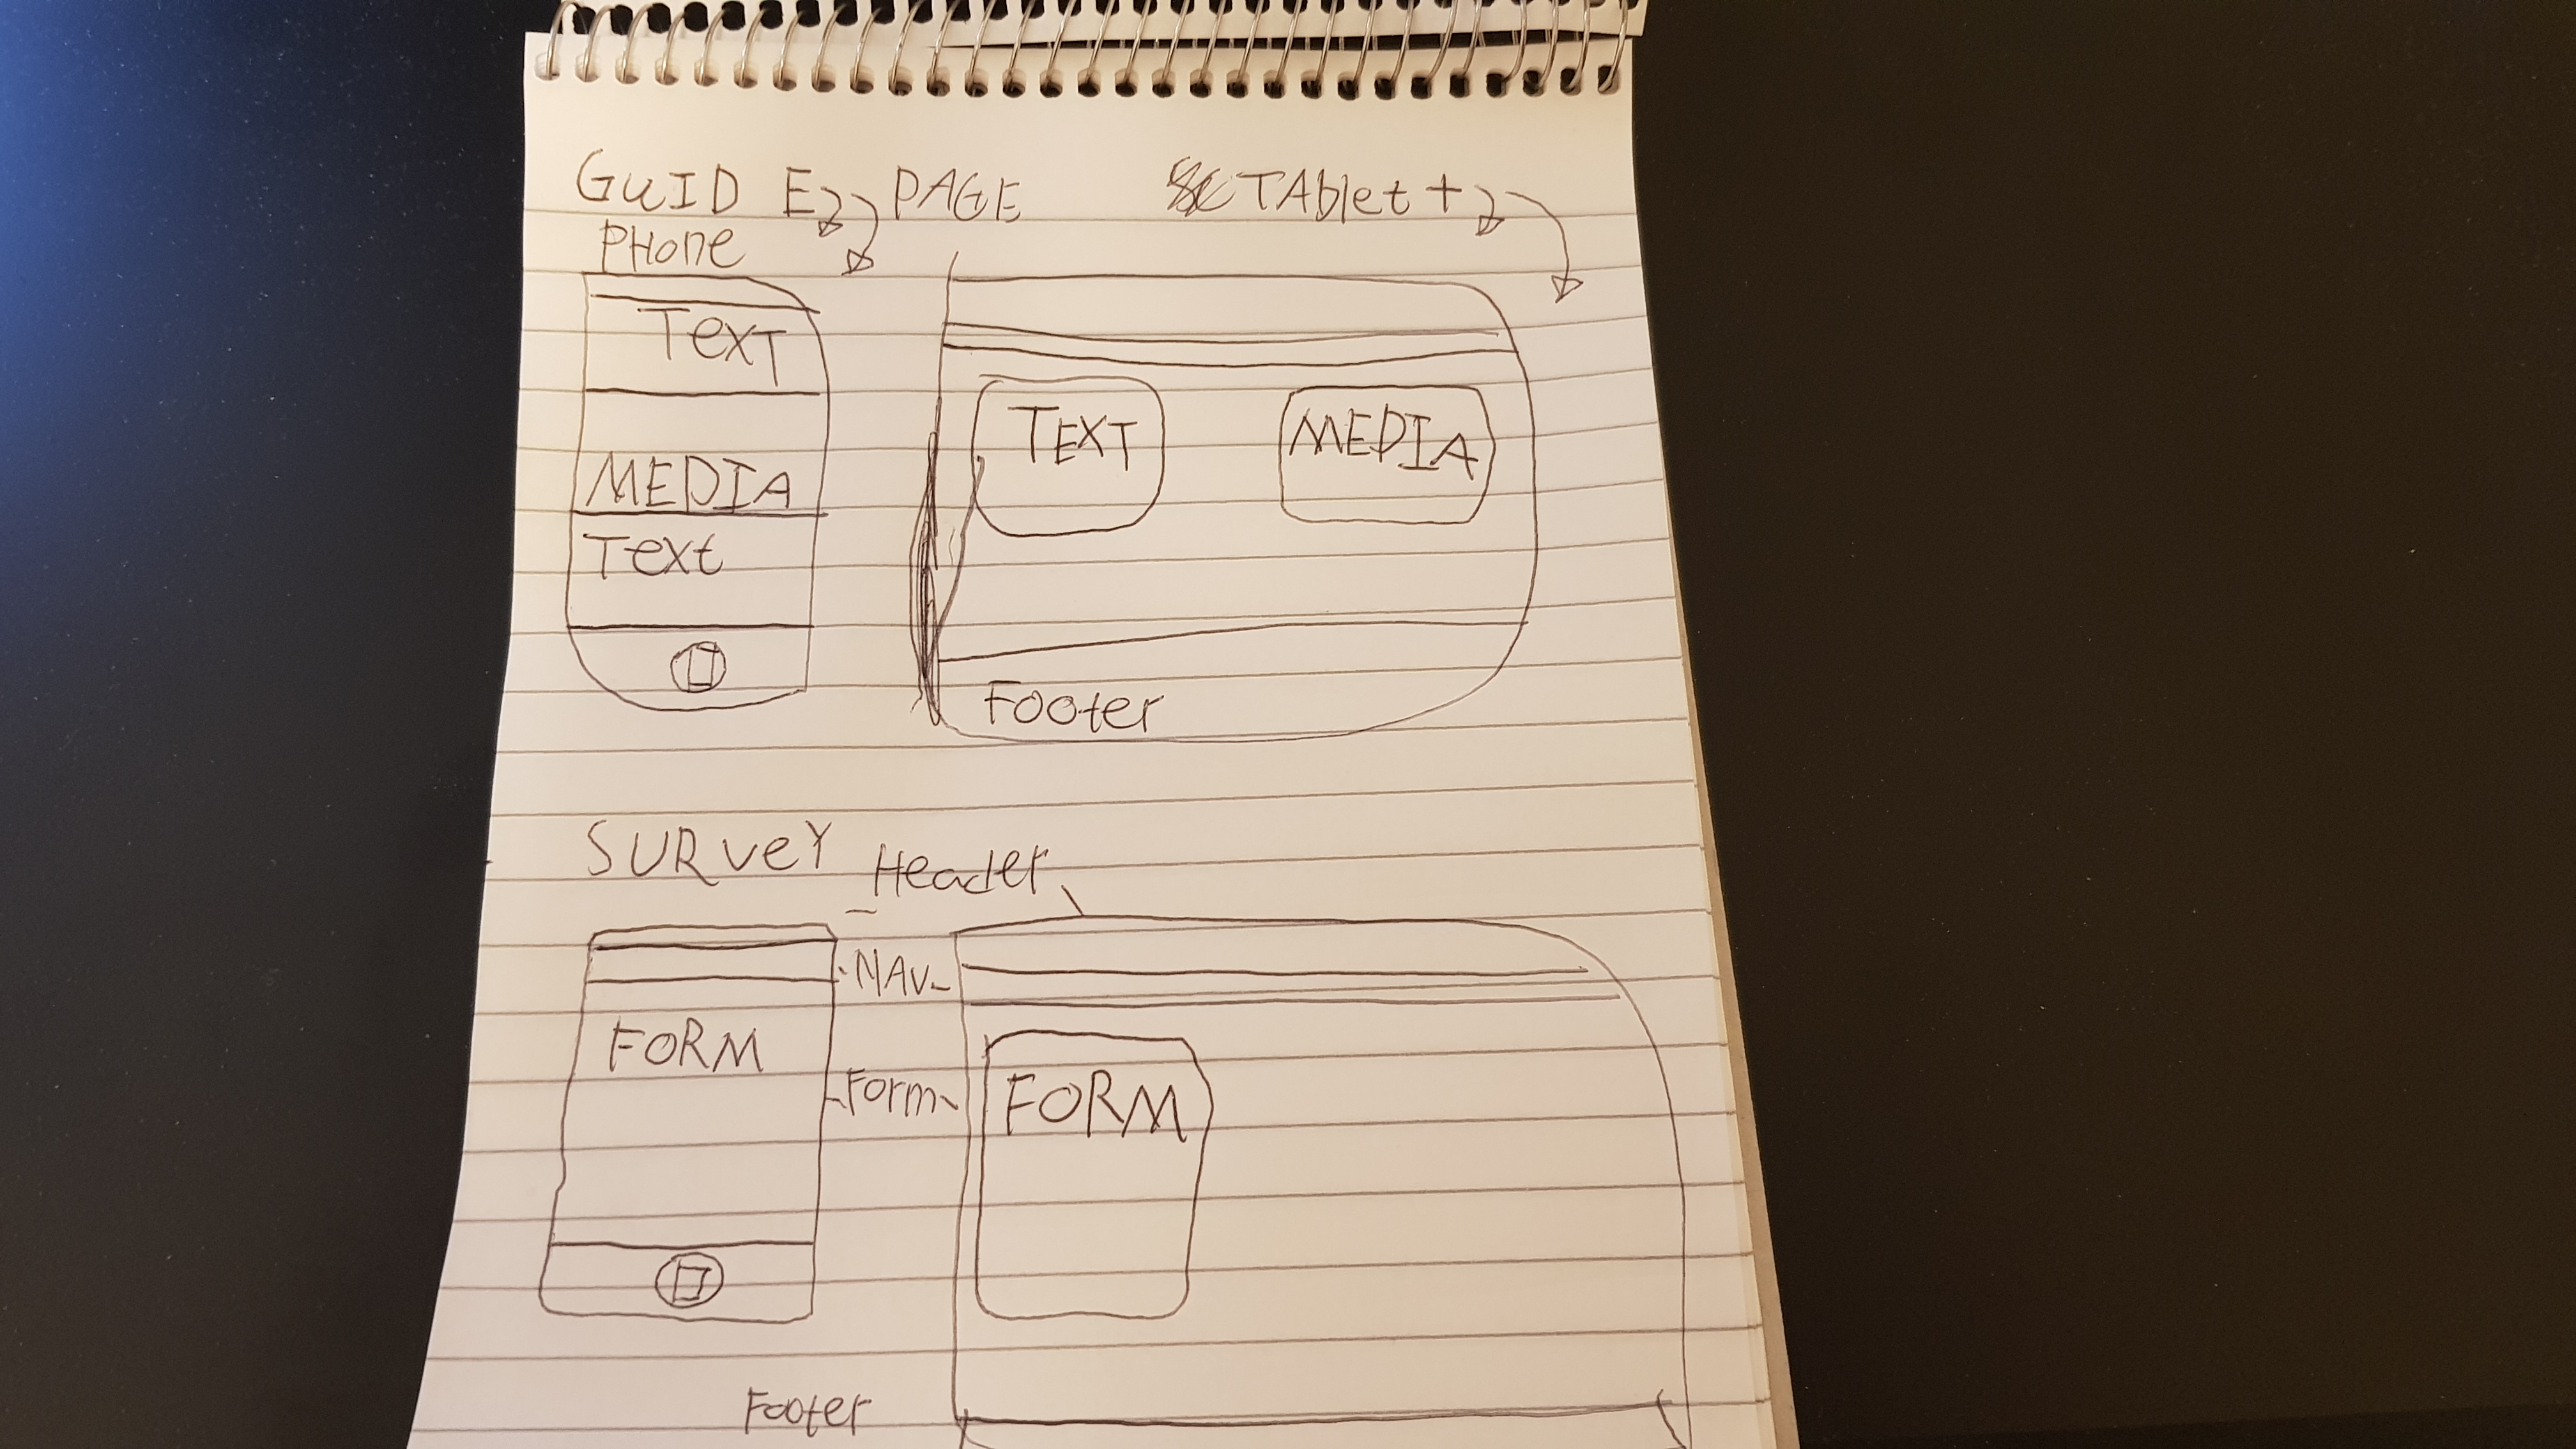 GUID E PAGE
TAblet +
PHone
TexT
MEDIA
Text
TEXT
MEDIA
Footer
SURVeY
Header
NAV
FORM
Form
FORM
Footer